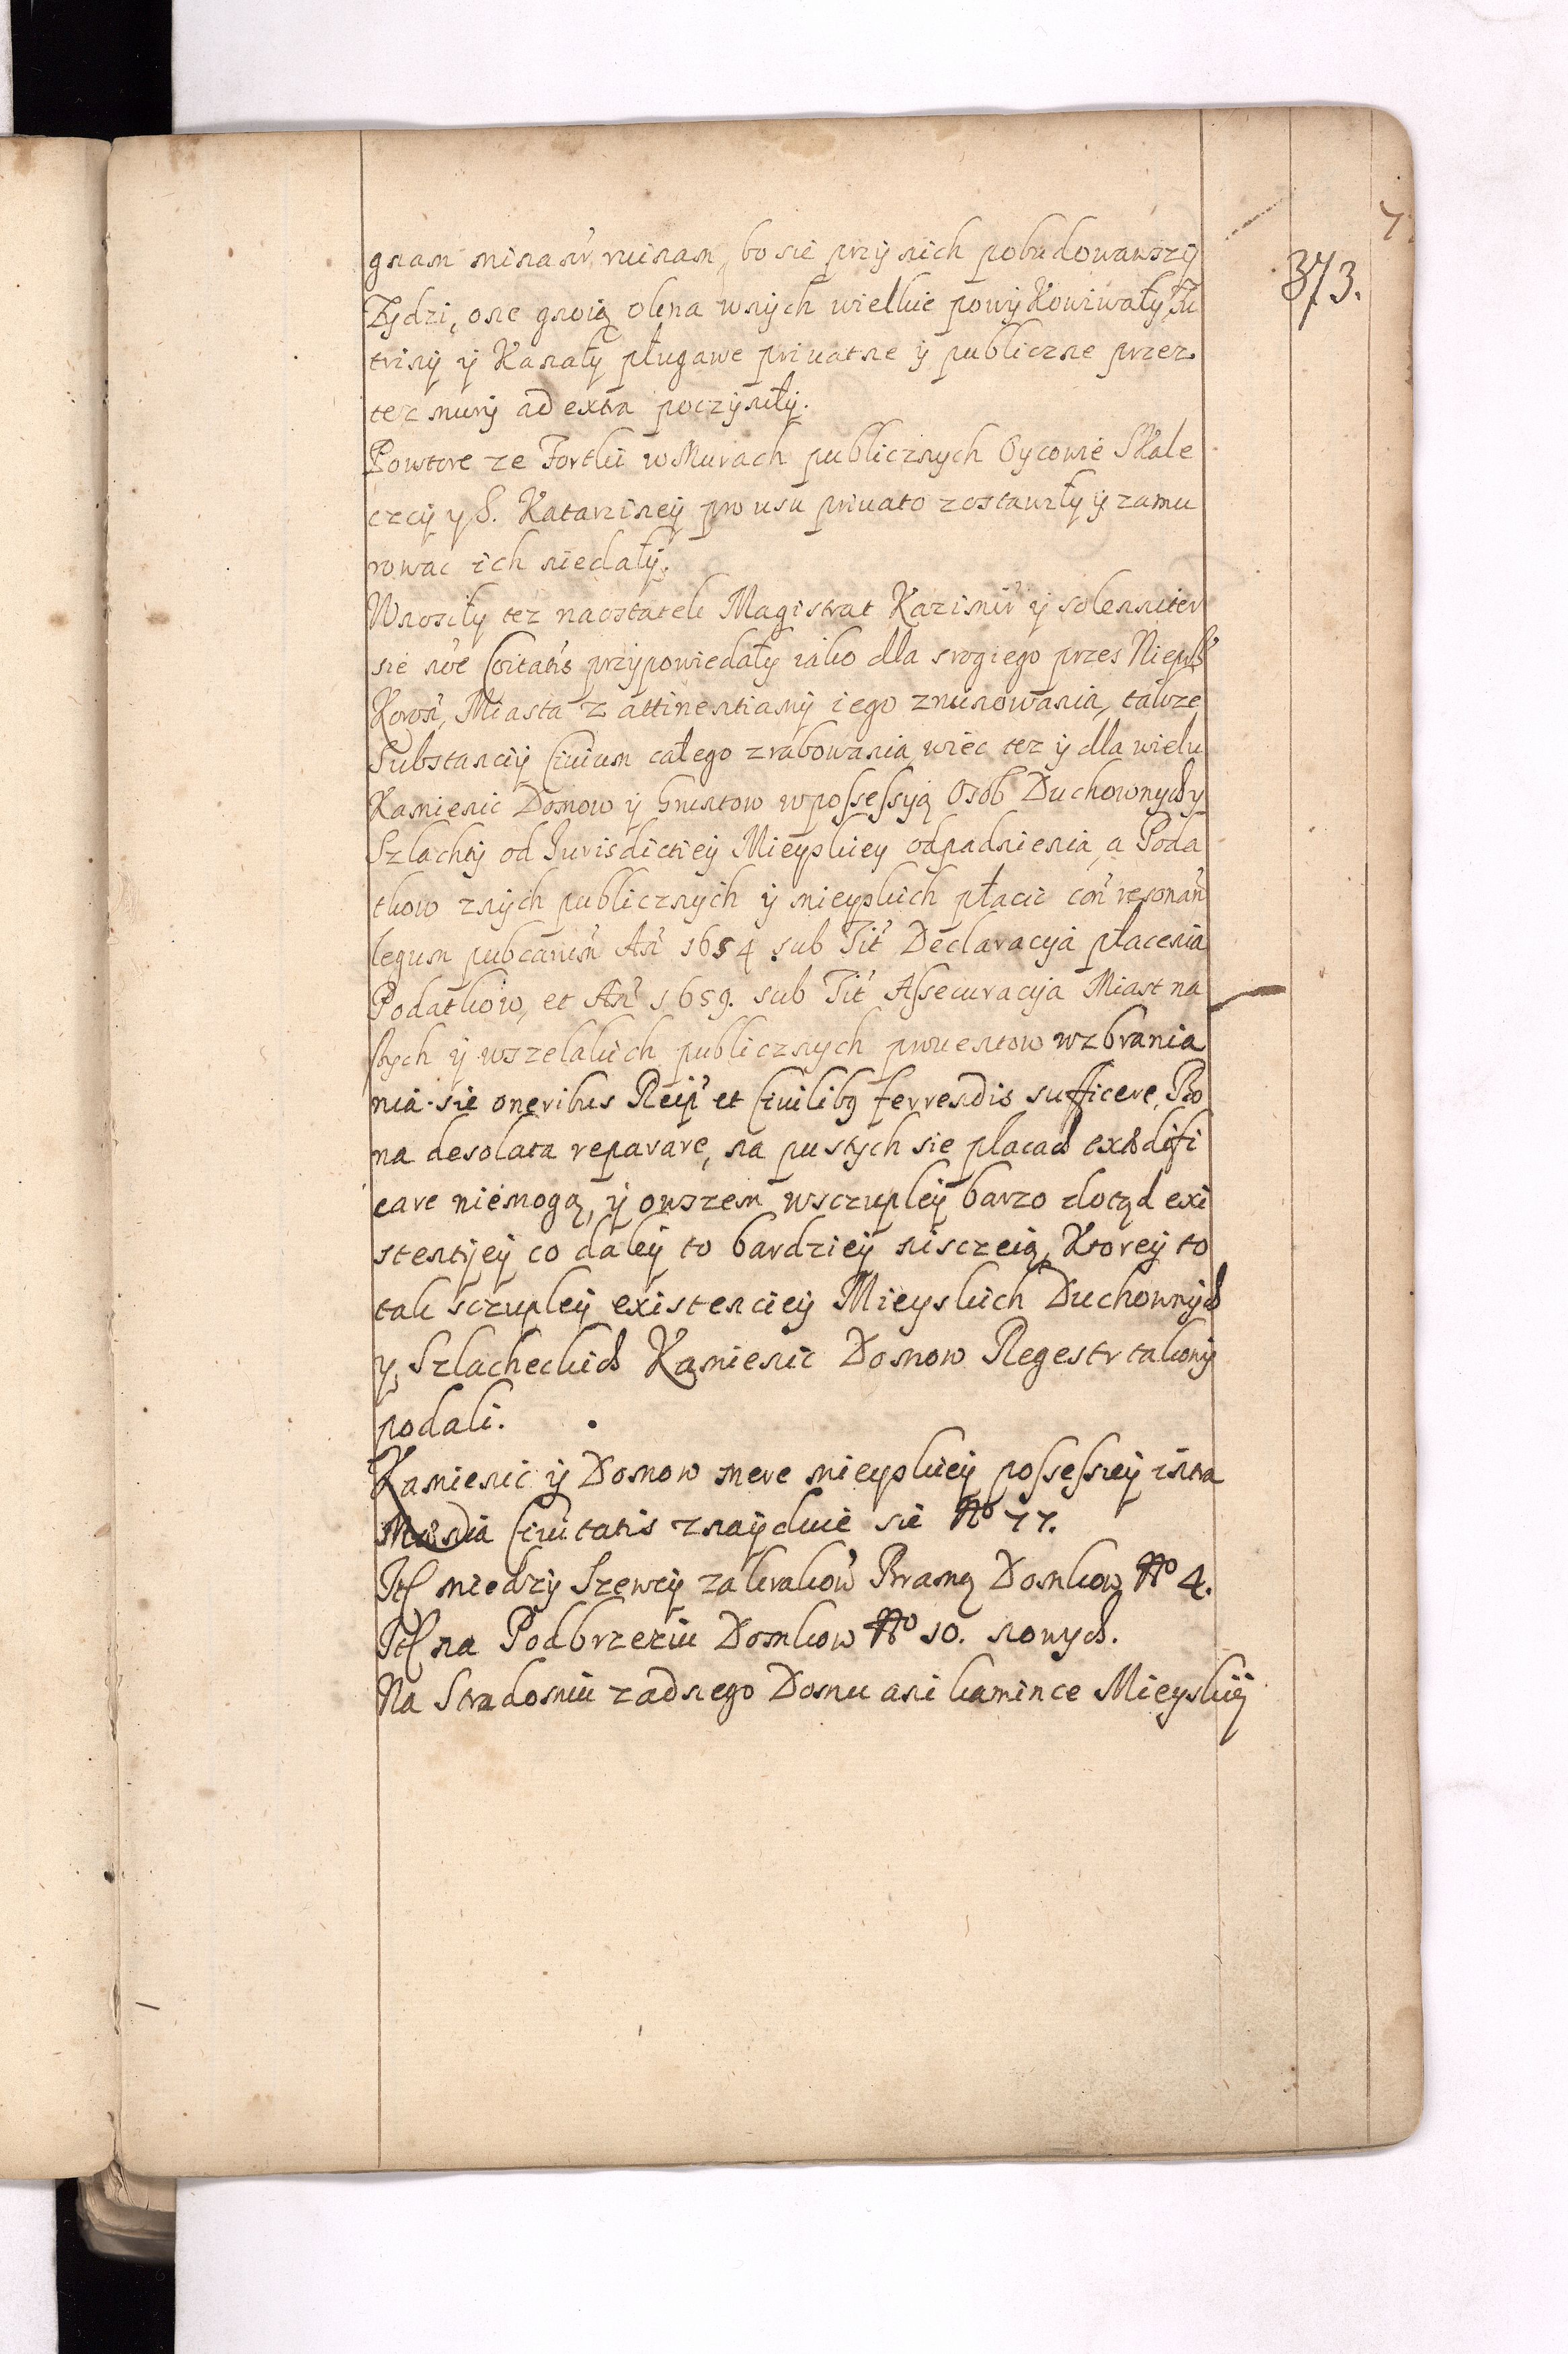 373.
gnam minant ruinam, bo sie przy nich pobudowawszy
Zydzi, one gnoią okna w nych wielkie powykowiwały, Lu
triny y Kanały plugawe priuatne y publiczne przez
tez mury ad extra poczyniły.
Powtore ze Fortki w Murach publicznych Oycowie Skale
czcy y S. Katarziney pro usu priuato zostawiły y zamu
rowac ich niedały.
Wnosiły tez naostatek Magistrat Kazimir y solenniter
sie przypowiedały iako dla srogiego przes
Miasta z attinentiamy iego zruinowania, takze
Substanciy Ciuium całego zrabowania wiec tez y dla wielu
Kamienic Domow y Gruntow w possessyą Osob Duchownych y
Szlachty od Jurisdictiey Mieyskiey odpadnienia, a Poda
tkow znych publicznych y mieyskich płacic
legum An 1654 sub Tit Declaracyia płacenia
Podatkow, et An 1659. sub Tit Assecuracyia Miast na
szych y wszelakich publicznych prouentow wzbrania
nia sie oneribus Reip et Ciuilibq ferrendis sufficere, Bo
na desolata reparare, na pustych sie placach exædifi
care niemogą, y owszem w sczupley barzo dotąd exi
stentyey co daley to bardziey nisczeią, Ktorey to
tak sczupley existenciey Mieyskich Duchownych
y Szlacheckich Kamienic Domow Regestr takowy
podali.
Kamienic y Domow mere mieyskiey possessiey intra
Mænia Ciuitatis znayduie sie No 77.
It miedzy Szewcy za krakow Bramą Domkow No 4.
It na Podbrzeziu Domkow No 10. nowych.
Na Stradomiu zadnego Domu ani kamince Mieyskiy